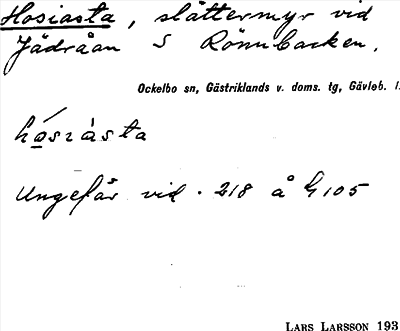 Hosiasta, slåttermyr vid
Jädråan S Rönnbacken.
Ockelbo sn, Gästriklands v. doms. tg, Gävleb. l.
hósiàsta
Ungefär vid · 218 å h 105
LARS LARSSON 193